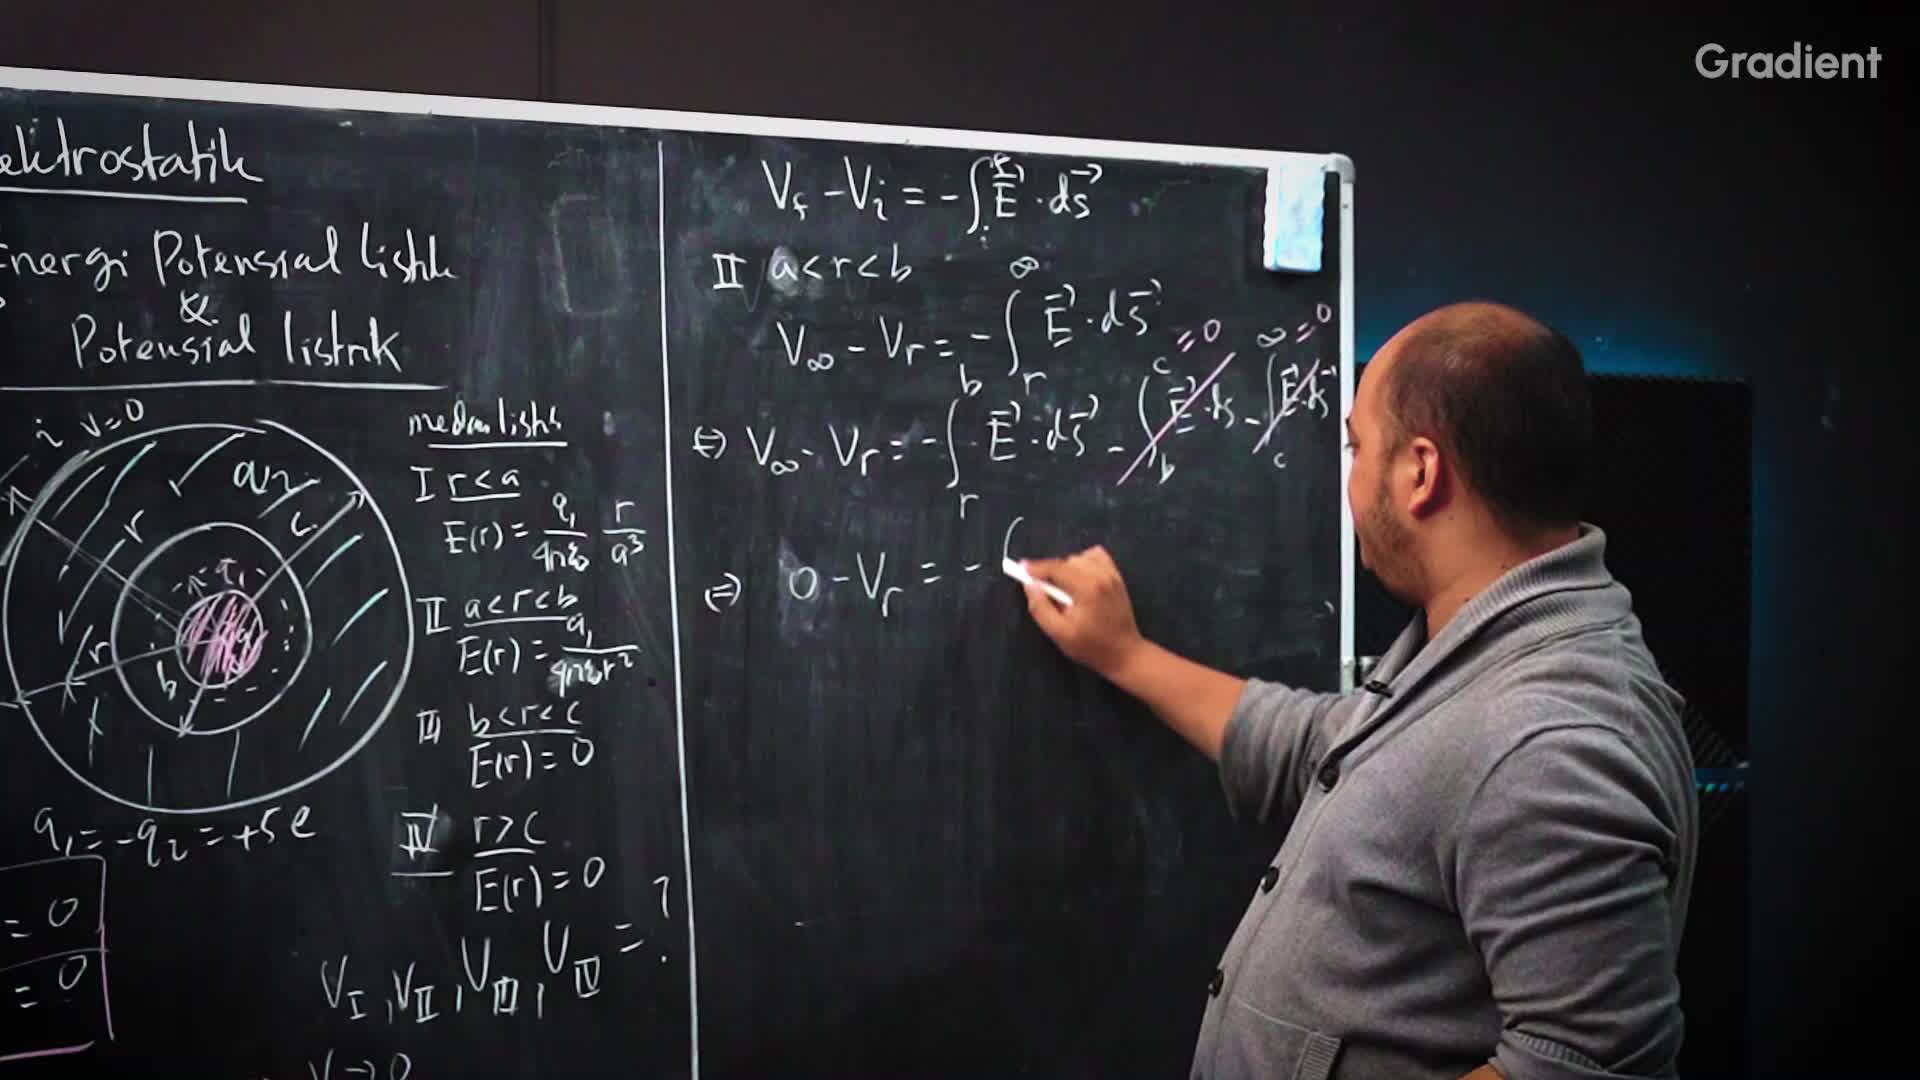 Gradient
elektrostatik
Energi Potensial listrik
&
Potensial listrik
i V=0
a r c
r q₁
r b
q₁ = -q₂ = +5e
= 0
= 0
medan listrik
I r<a
E(r) = q₁/4πε₀ r/a³
II a<r<b
E(r) = q₁/4πε₀r²
III b<r<c
E(r) = 0
IV r>c
E(r) = 0
V_I, V_II, V_III, V_IV = ?
V → 0
V_f - V_i = -∫_i^f E⃗ · ds⃗
II a<r<b
V_∞ - V_r = -∫_r^∞ E⃗ · ds⃗
⇔ V_∞ - V_r = -∫_r^b E⃗ · ds⃗ - ∫_b^c E⃗ · ds = 0 - ∫_c^∞ E⃗ · ds⃗ = 0
⇔ 0 - V_r = -